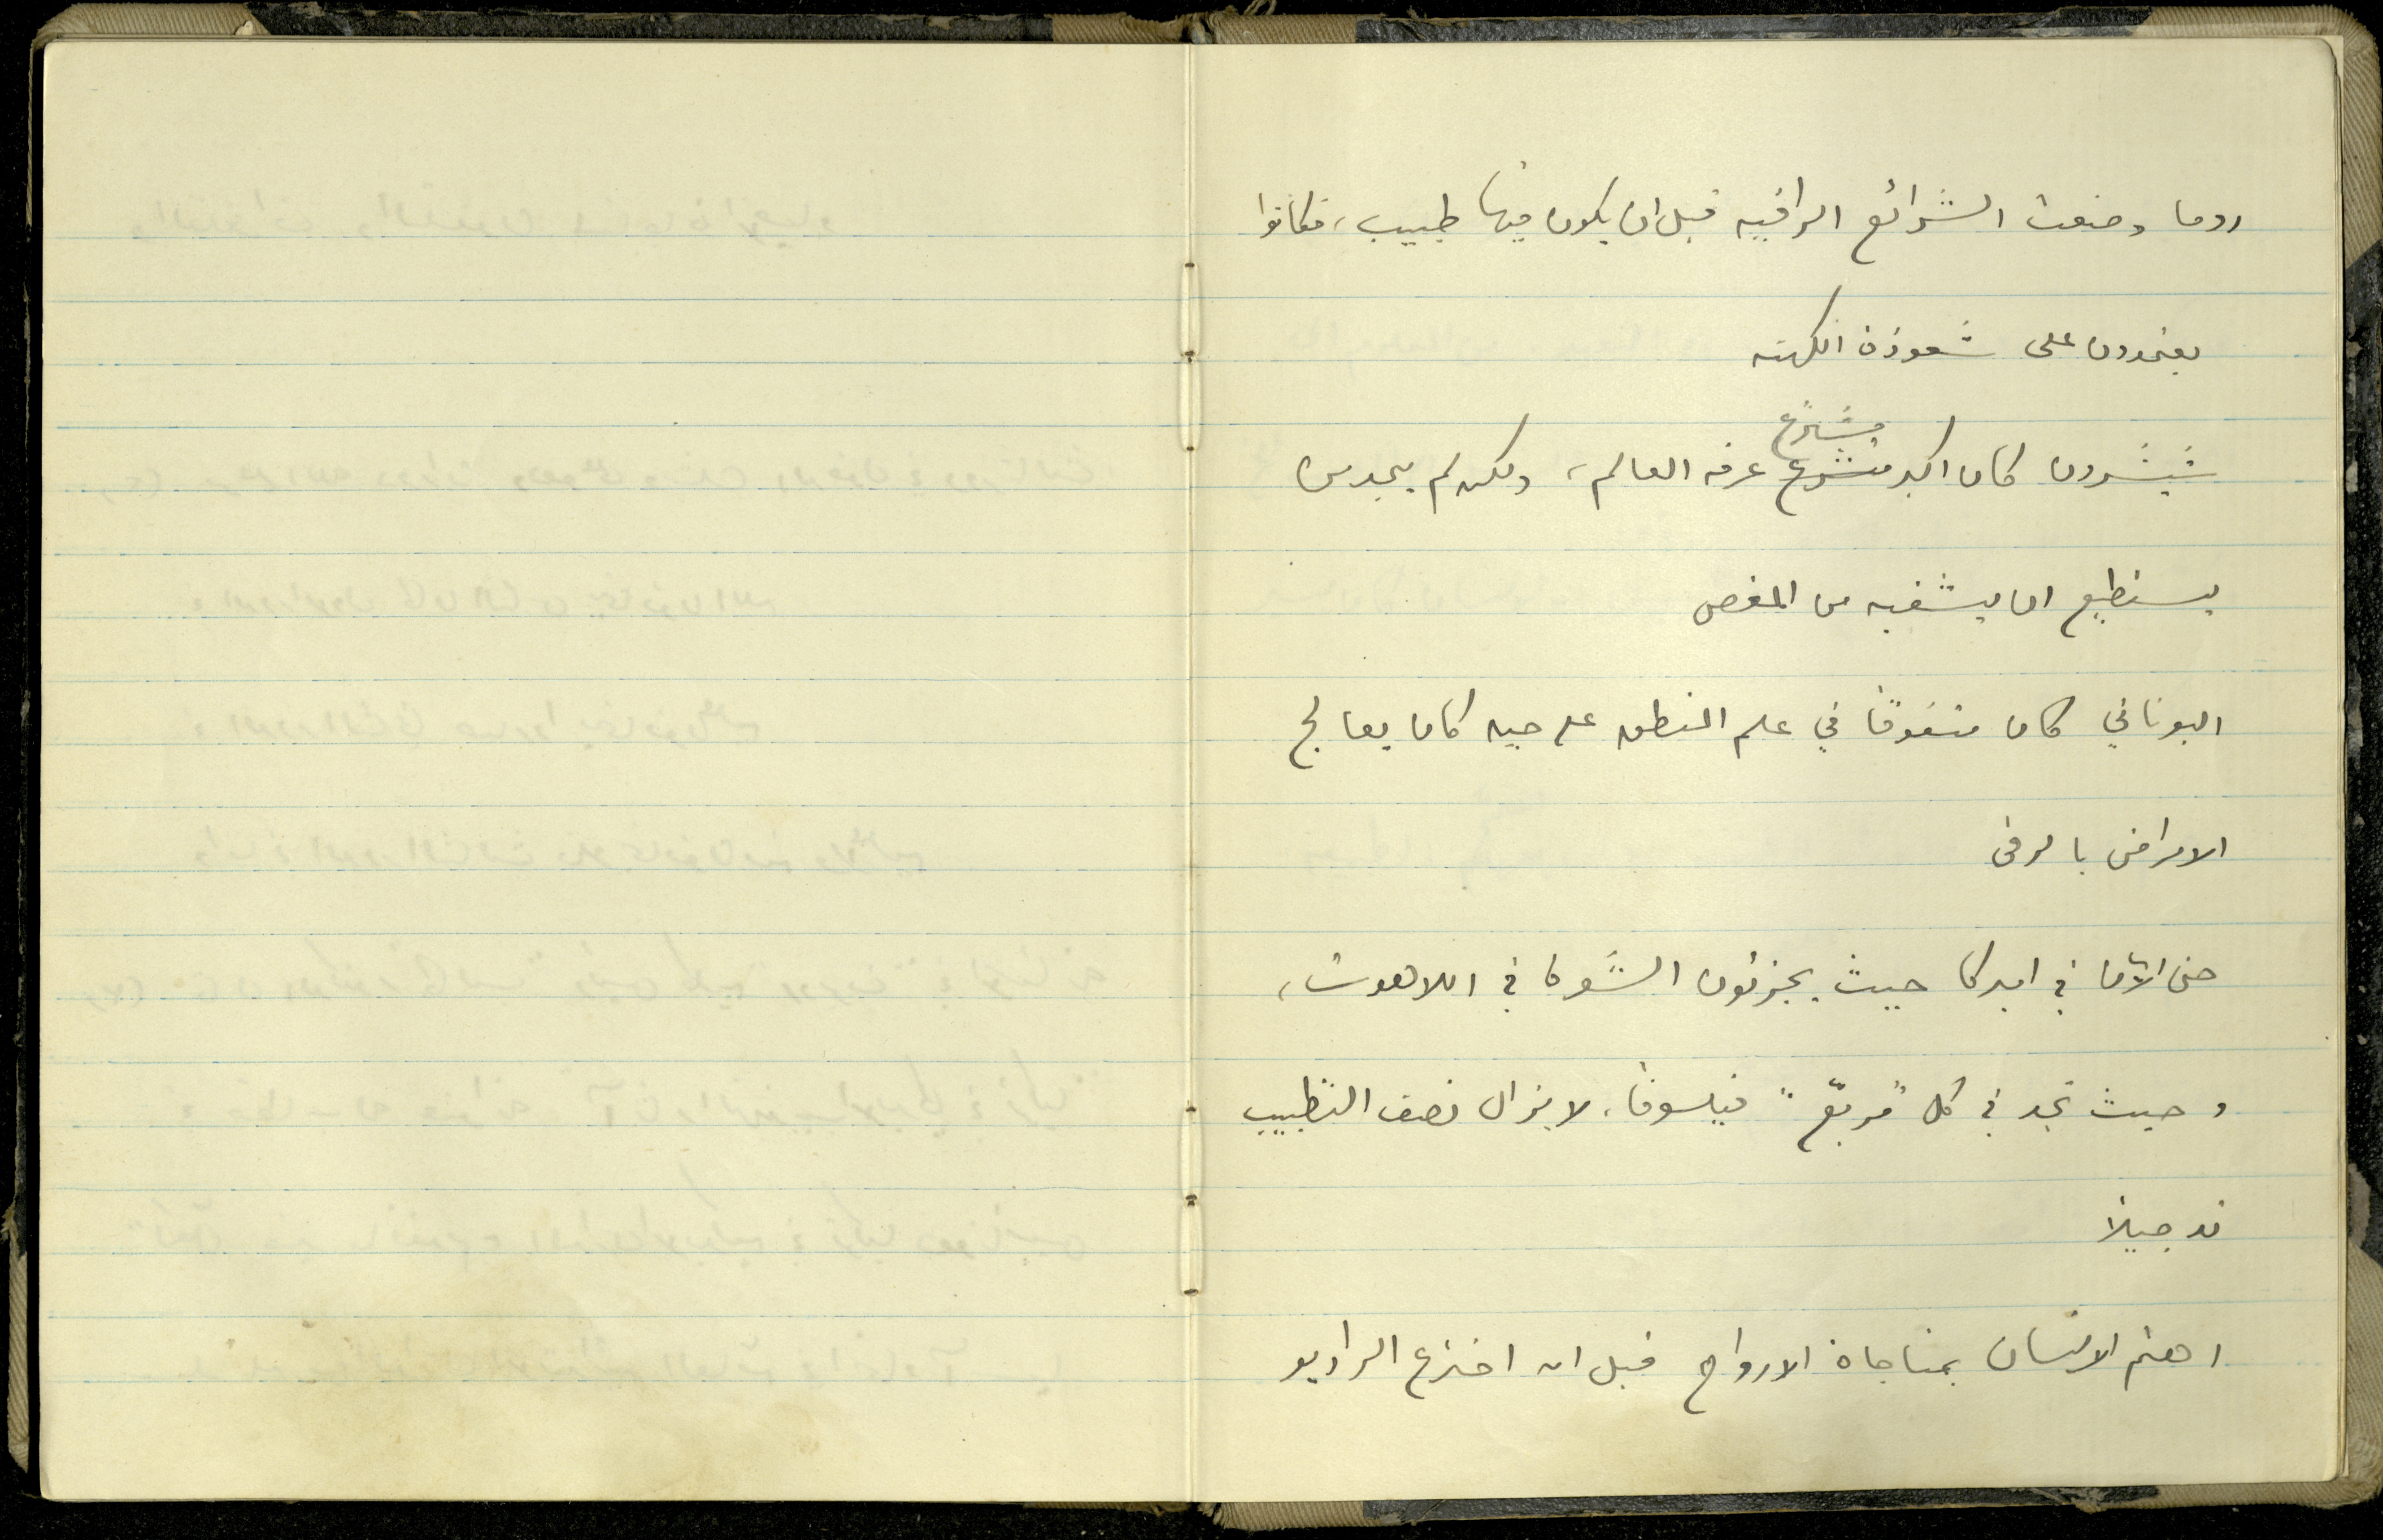 روما وضعت الشرائع الراقيه قبل ان يكون فيها طبيب، فكانوا
يعتمدون على شعوذة الكهنه
مشترع
شيشرون كان اكبر مشرع عرفه العالم، ولكنه لم يجد من
يستطيع ان يشفيه من المغص
اليوناني كان متفوقاً في علم المنطق على حين كان يعالج
الامراض بالرقى
حتى الآن في اميركا حيث يجزئون الشعره في اللاهوت،
وحيث تجد في كل "مربّع" فيلسوفا، لا يزال نصف التطبيب
تدجيلاً
اهتم الانسان بمناجاة الارواح قبل ان اخترع الراديو